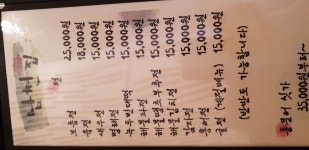 전
모듬전 25,000원
육전 18,000원
새우전 15,000원
명태전 15,000원
녹두빈대떡 15,000원
해물파전 15,000원
해물땡초부추전 15,000원
해물김치전 15,000원
김치전 15,000원
홍어전 15,000원
굴전 (계절메뉴) 15,000원
(반반도 가능합니다)
홍문어 싯가
35,000원부터~